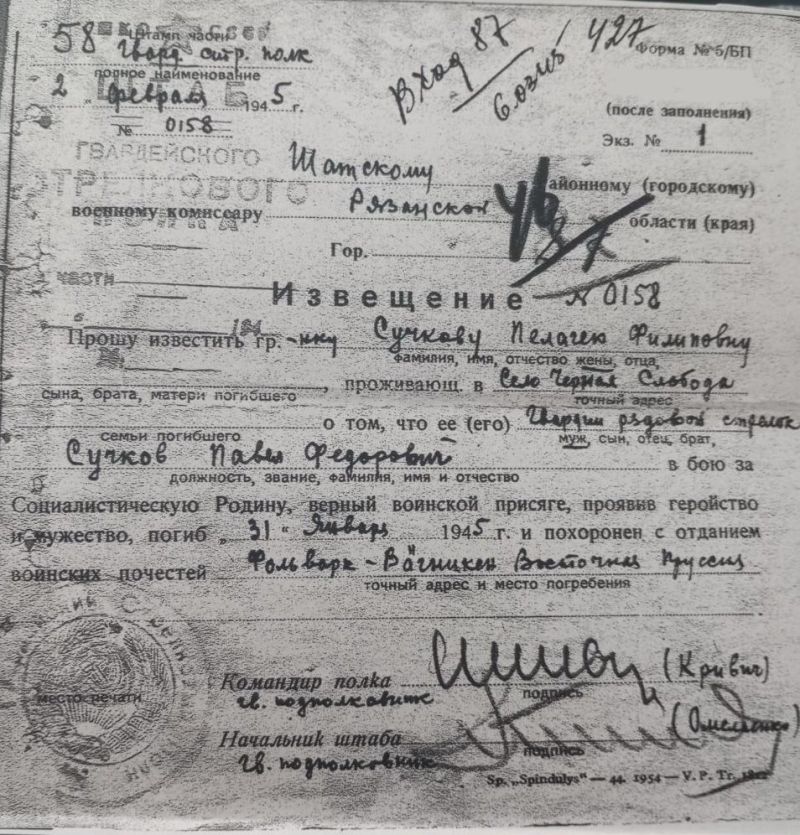 58 Штамп части
Гвард стр. полк
полное наименование
2 „ февраля 1945 г.
№ 0158
Вход 87
427
Форма № 5/БП
(после заполнения)
Экз. № 1
ГВАРДЕЙСКОГО
СТРЕЛКОВОГО
Шатскому районному (городскому)
военному комиссару Рязанской области (края)
Гор.
части
Извещение N 0158
Прошу известить гр.-нку Сучкову Пелагею Филиповну
фамилия, имя, отчество жены, отца,
, проживающ. в Село Черная Слобода
сына, брата, матери погибшего точный адрес
о том, что ее (его) Гвардии рядовой стрелок
семьи погибшего муж, сын, отец, брат,
Сучков Павел Федорович в бою за
должность, звание, фамилия, имя и отчество
Социалистическую Родину, верный воинской присяге, проявив геройство
и мужество, погиб „ 31 “ Января 1945 г. и похоронен с отданием
воинских почестей Фольварк-Вагникен Восточная Пруссия
точный адрес и место погребения
место печати
Командир полка (Кривич)
гв. подполковник подпись
Начальник штаба
гв. подполковник подпись
Sp. „Spindulys“ — 44. 1954 — V. P. Tr.